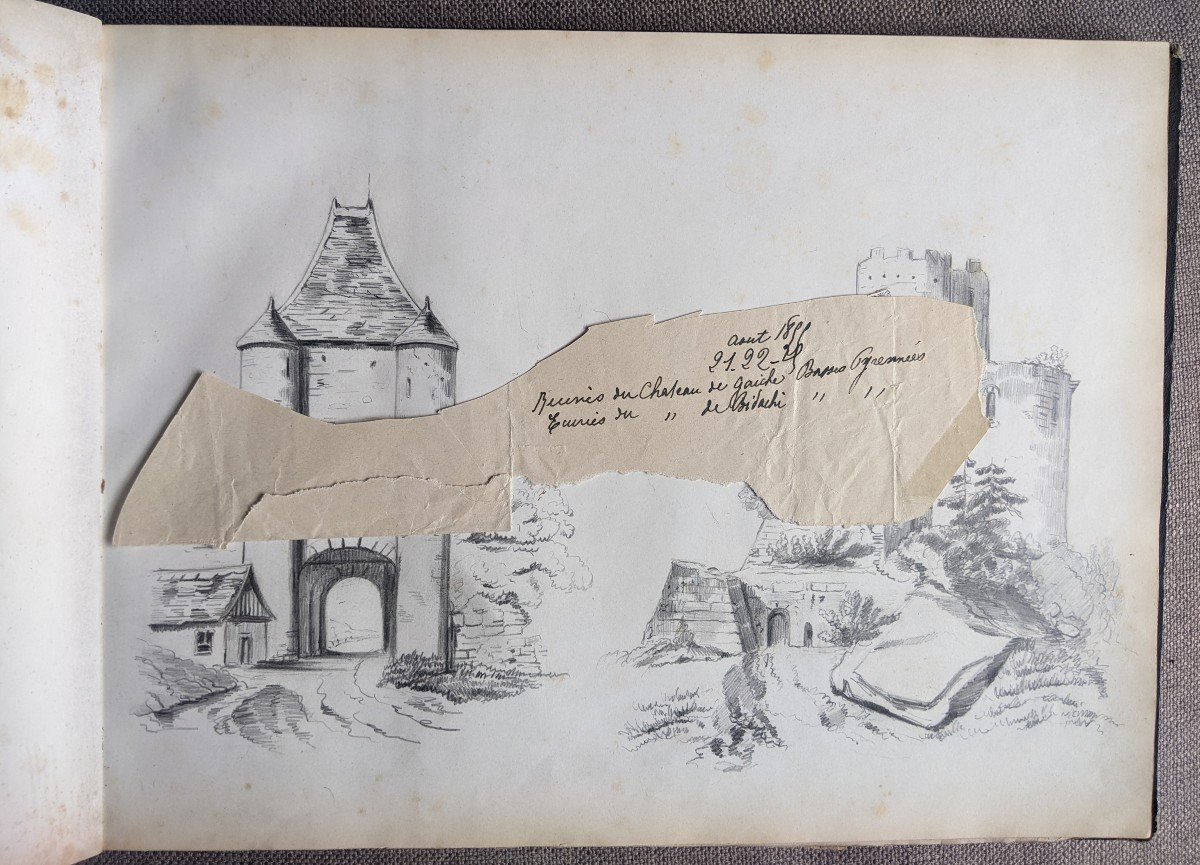 Aout 18
21.22-29
Ruines du Chateau de Guiche Basses Pyrennées
Ecuries du " de Bidachi " "